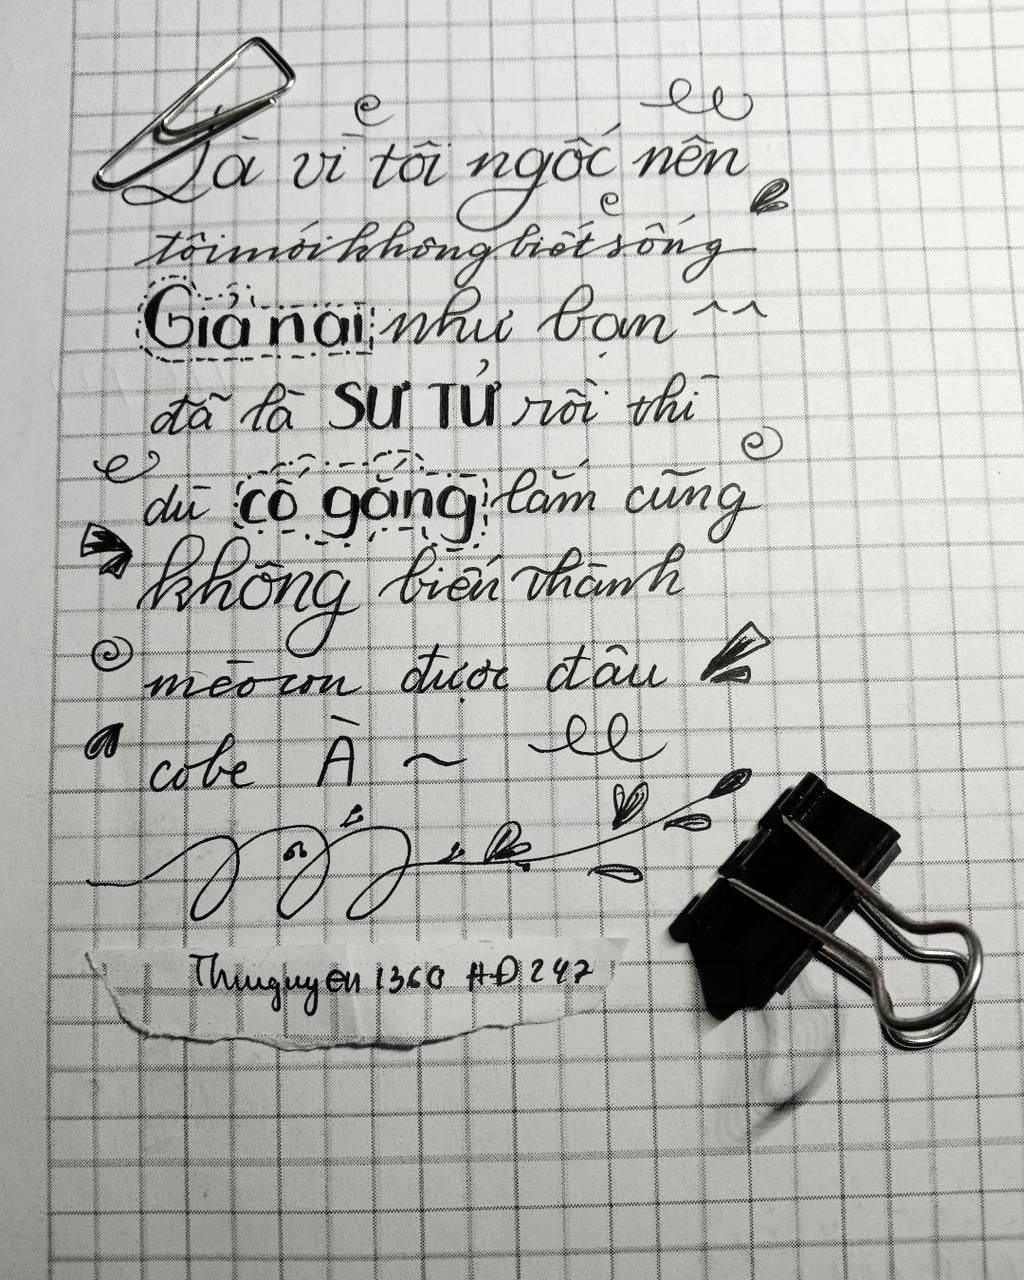 Là vì tôi ngốc nên
tôi mới không biết sống
Giả nai như bạn ^^
đã là SƯ TỬ rồi thì
dù cố gắng lắm cũng
không biến thành
mèo con được đâu
cobe À ~
Thuuguyen 1360 HĐ 247